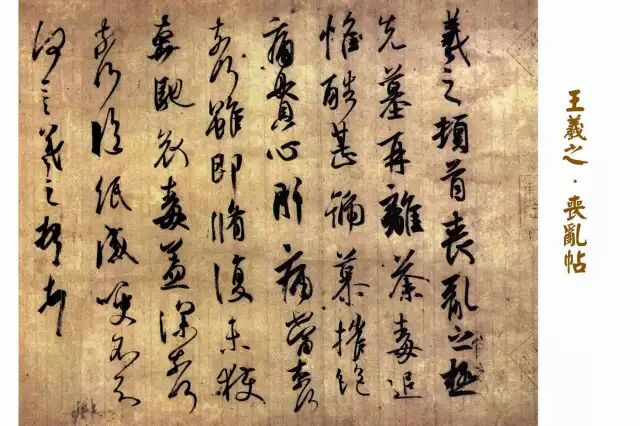 王羲之·喪亂帖
羲之頓首喪亂之極
先墓再離荼毒追
惟酷甚號慕摧絕
痛貫心肝痛當奈何
奈何雖即脩復未獲
奔馳哀毒益深奈何
奈何臨紙感哽不知
何言羲之頓首頓首